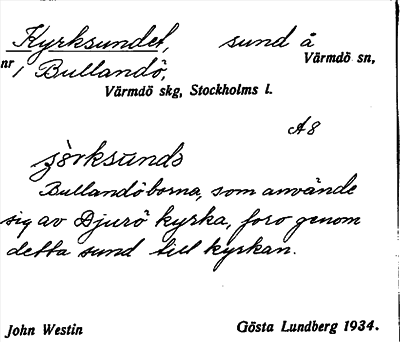 Kyrksundet, sund å
Värmdö sn,
nr 1 Bullandö,
Värmdö skg, Stockholms l.
A8
Bullandöborna, som använde
sig av Djurö kyrka, foro genom
detta sund till kyrkan.
John Westin Gösta Lundberg 1934.